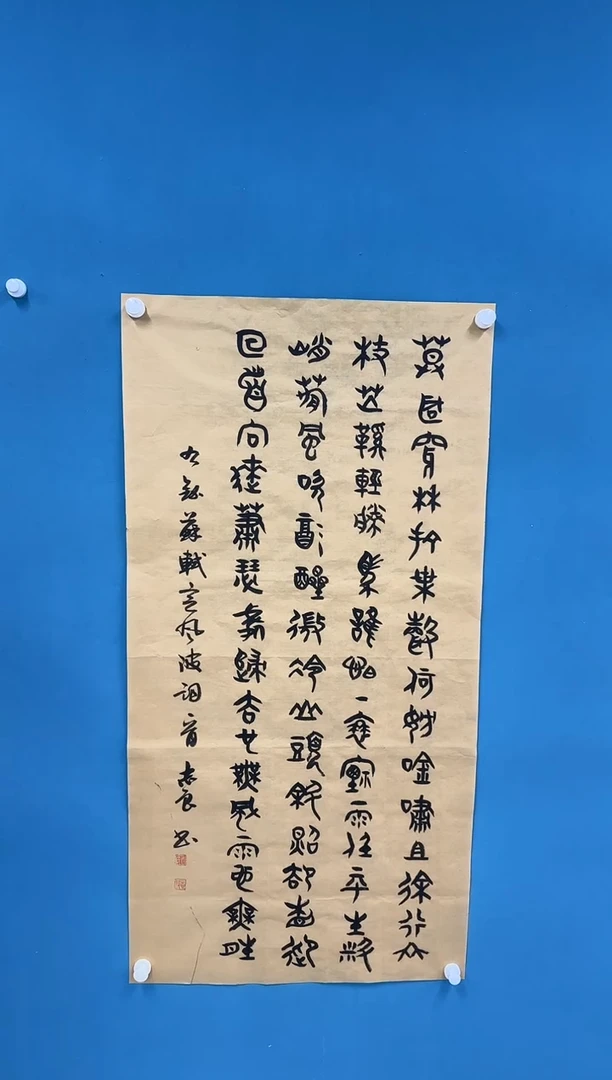 莫聽穿林打葉聲何妨吟嘯且徐行竹
杖芒鞋輕勝馬誰怕一蓑煙雨任平生料
峭春風吹酒醒微冷山頭斜照卻相迎
回首向來蕭瑟處歸去也無風雨也無晴
右錄蘇軾定風波詞一首 志良書